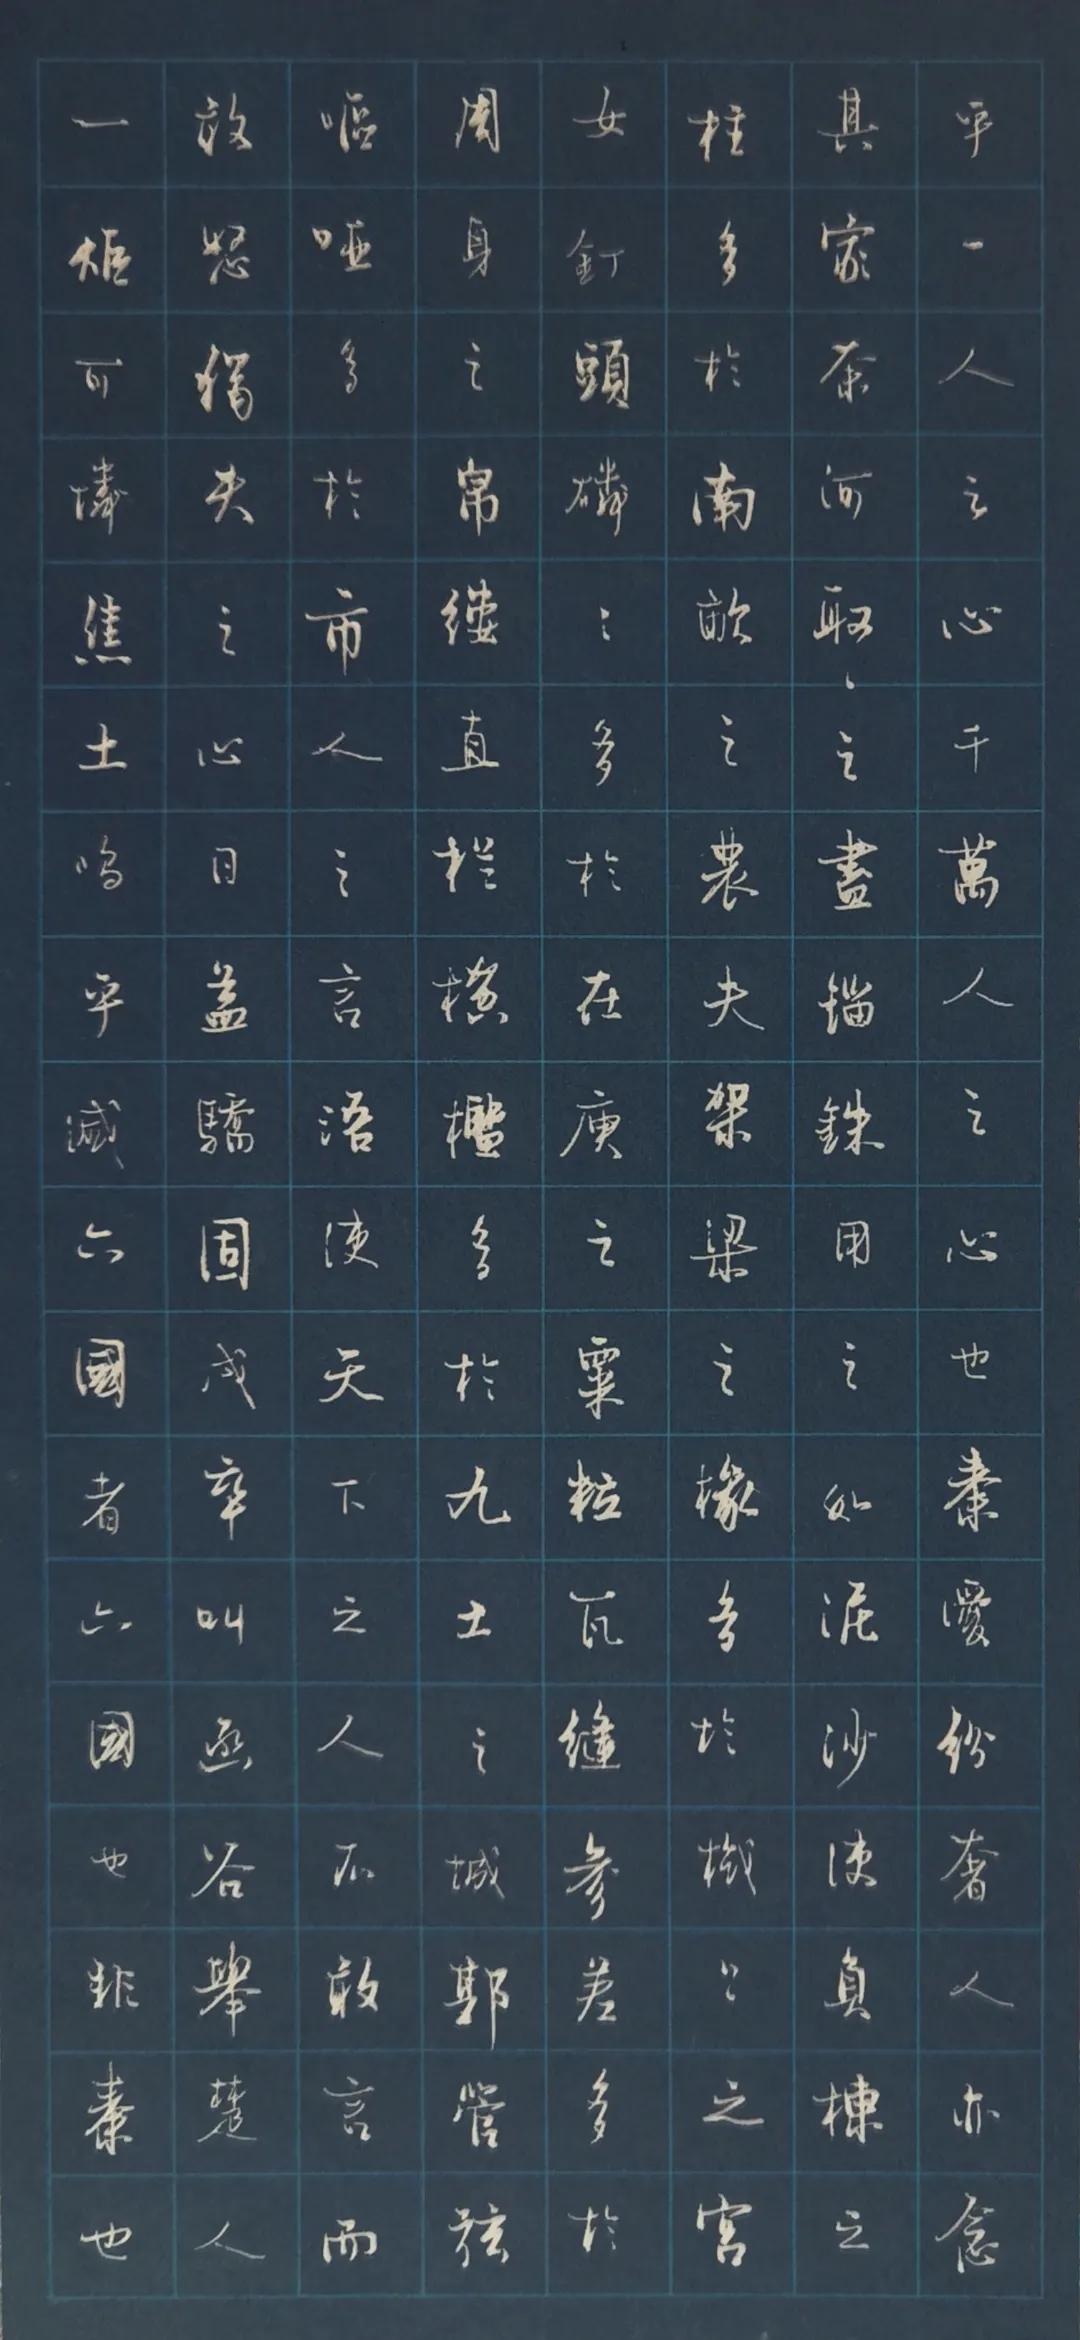 乎一人之心千萬人之心也秦愛紛奢人亦念
其家奈何取之盡錙銖用之如泥沙使負棟之
柱多於南畝之農夫架梁之椽多於機上之宮
女釘頭磷〻多於在庾之粟粒瓦縫參差多於
周身之帛縷直栏橫檻多於九土之城郭管弦
嘔啞多於市人之言語使天下之人不敢言而
敢怒獨夫之心日益驕固戍卒叫函谷舉楚人
一炬可憐焦土嗚乎滅六國者六國也非秦也